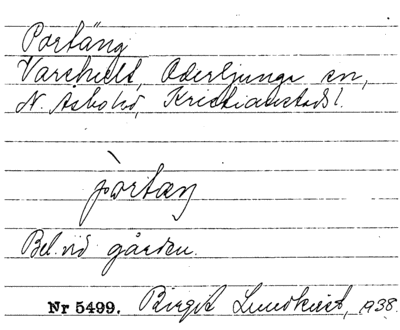 Portäng
Varshult, Oderljunga sn,
N. Åsbo hd, Kristianstads l.
pòrtæŋ
Bel. vid gården.
Nr 5499. Birgit Lundkvist, 1938.